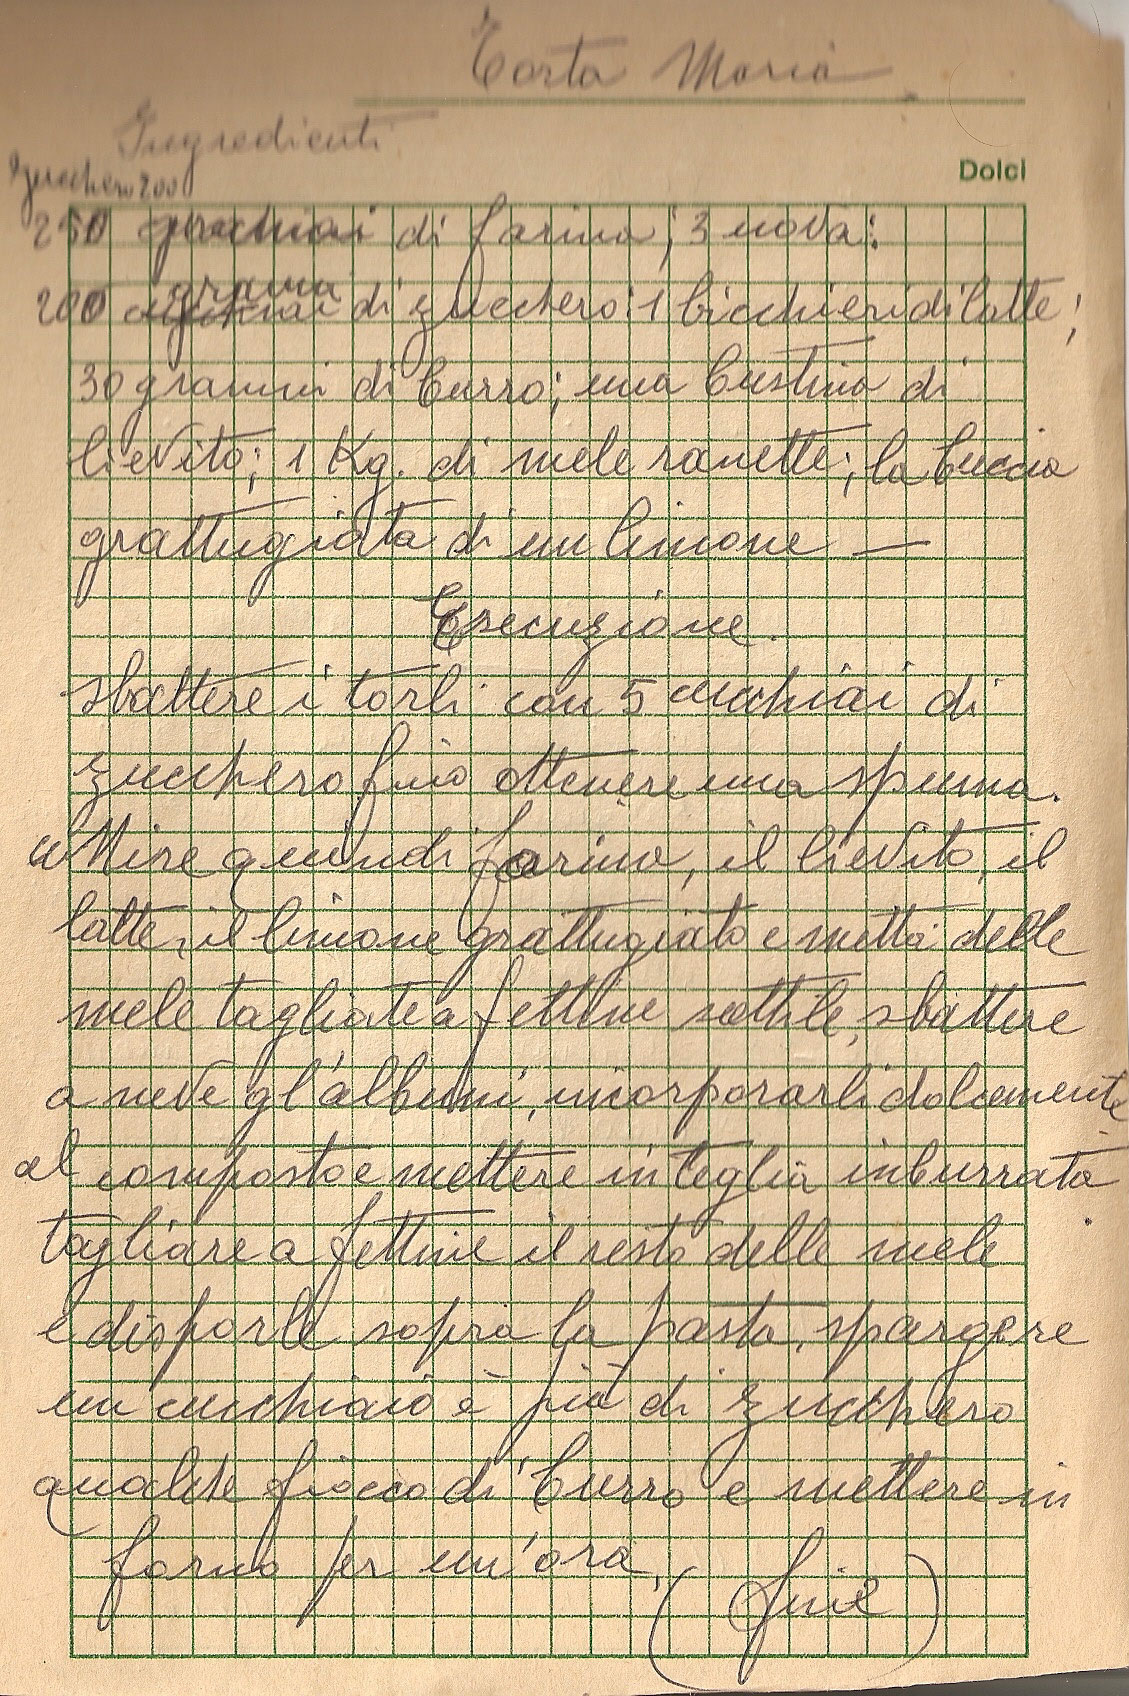 Torta Maria
Ingredienti
Dolci
Zucchero 200
250 di farina; 3 uova:
grammi
200 cucchiai di zucchero: 1 bicchieri di latte;
30 grammi di burro; una bustina di
lievito; 1 Kg. di mele ranette; la buccia
grattugiata di un limone —
Esecuzione.
sbattere i torli con 5 cucchiai di
zucchero fino ottenere una spuma.
unire quindi farina, il lievito, il
latte, il limone grattugiato e mettà delle
mele tagliate a fettine sottile, sbattere
a neve gl'albumi, incorporarli dolcemente
al composto e mettere in teglia inburrata
tagliare a fettine il resto delle mele
e disporle sopra la pasta, spargere
un cucchiaio è più di zucchero
qualche fiocco di burro e mettere in
forno per un'ora,
(fine)